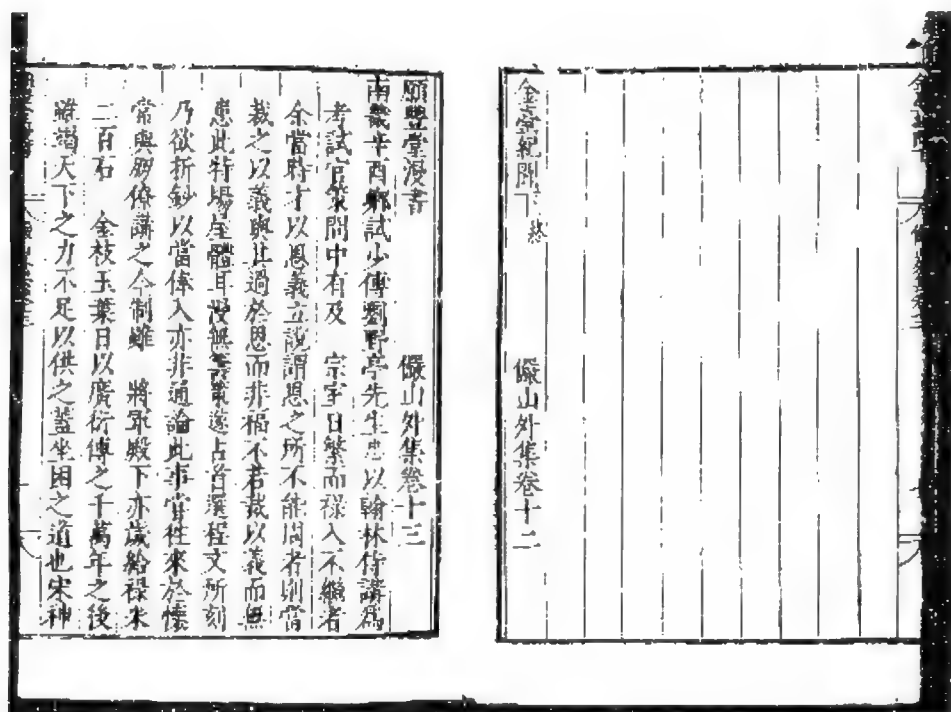 金臺紀聞下 終 儼山外集卷十二
願豐堂漫書 儼山外集卷十三
南畿辛酉鄉試少傅劉野亭先生忠以翰林侍講爲
考試官策問中有及 宗室日繁而祿入不繼者
余當時才以恩義立說謂恩之所不能周者則當
裁之以義與其過於恩而非福不若裁以義而無
患此特場屋體耳漫無籌策遂占首選程文所刻
乃欲折鈔以當俸入亦非通論此事當徃來於懷
常與 僚講之今制雖 將軍殿下亦歲給祿米
二百石 金枝玉葉日以廣衍傳之千萬年之後
雖竭天下之力不足以供之蓋坐困之道也宋神